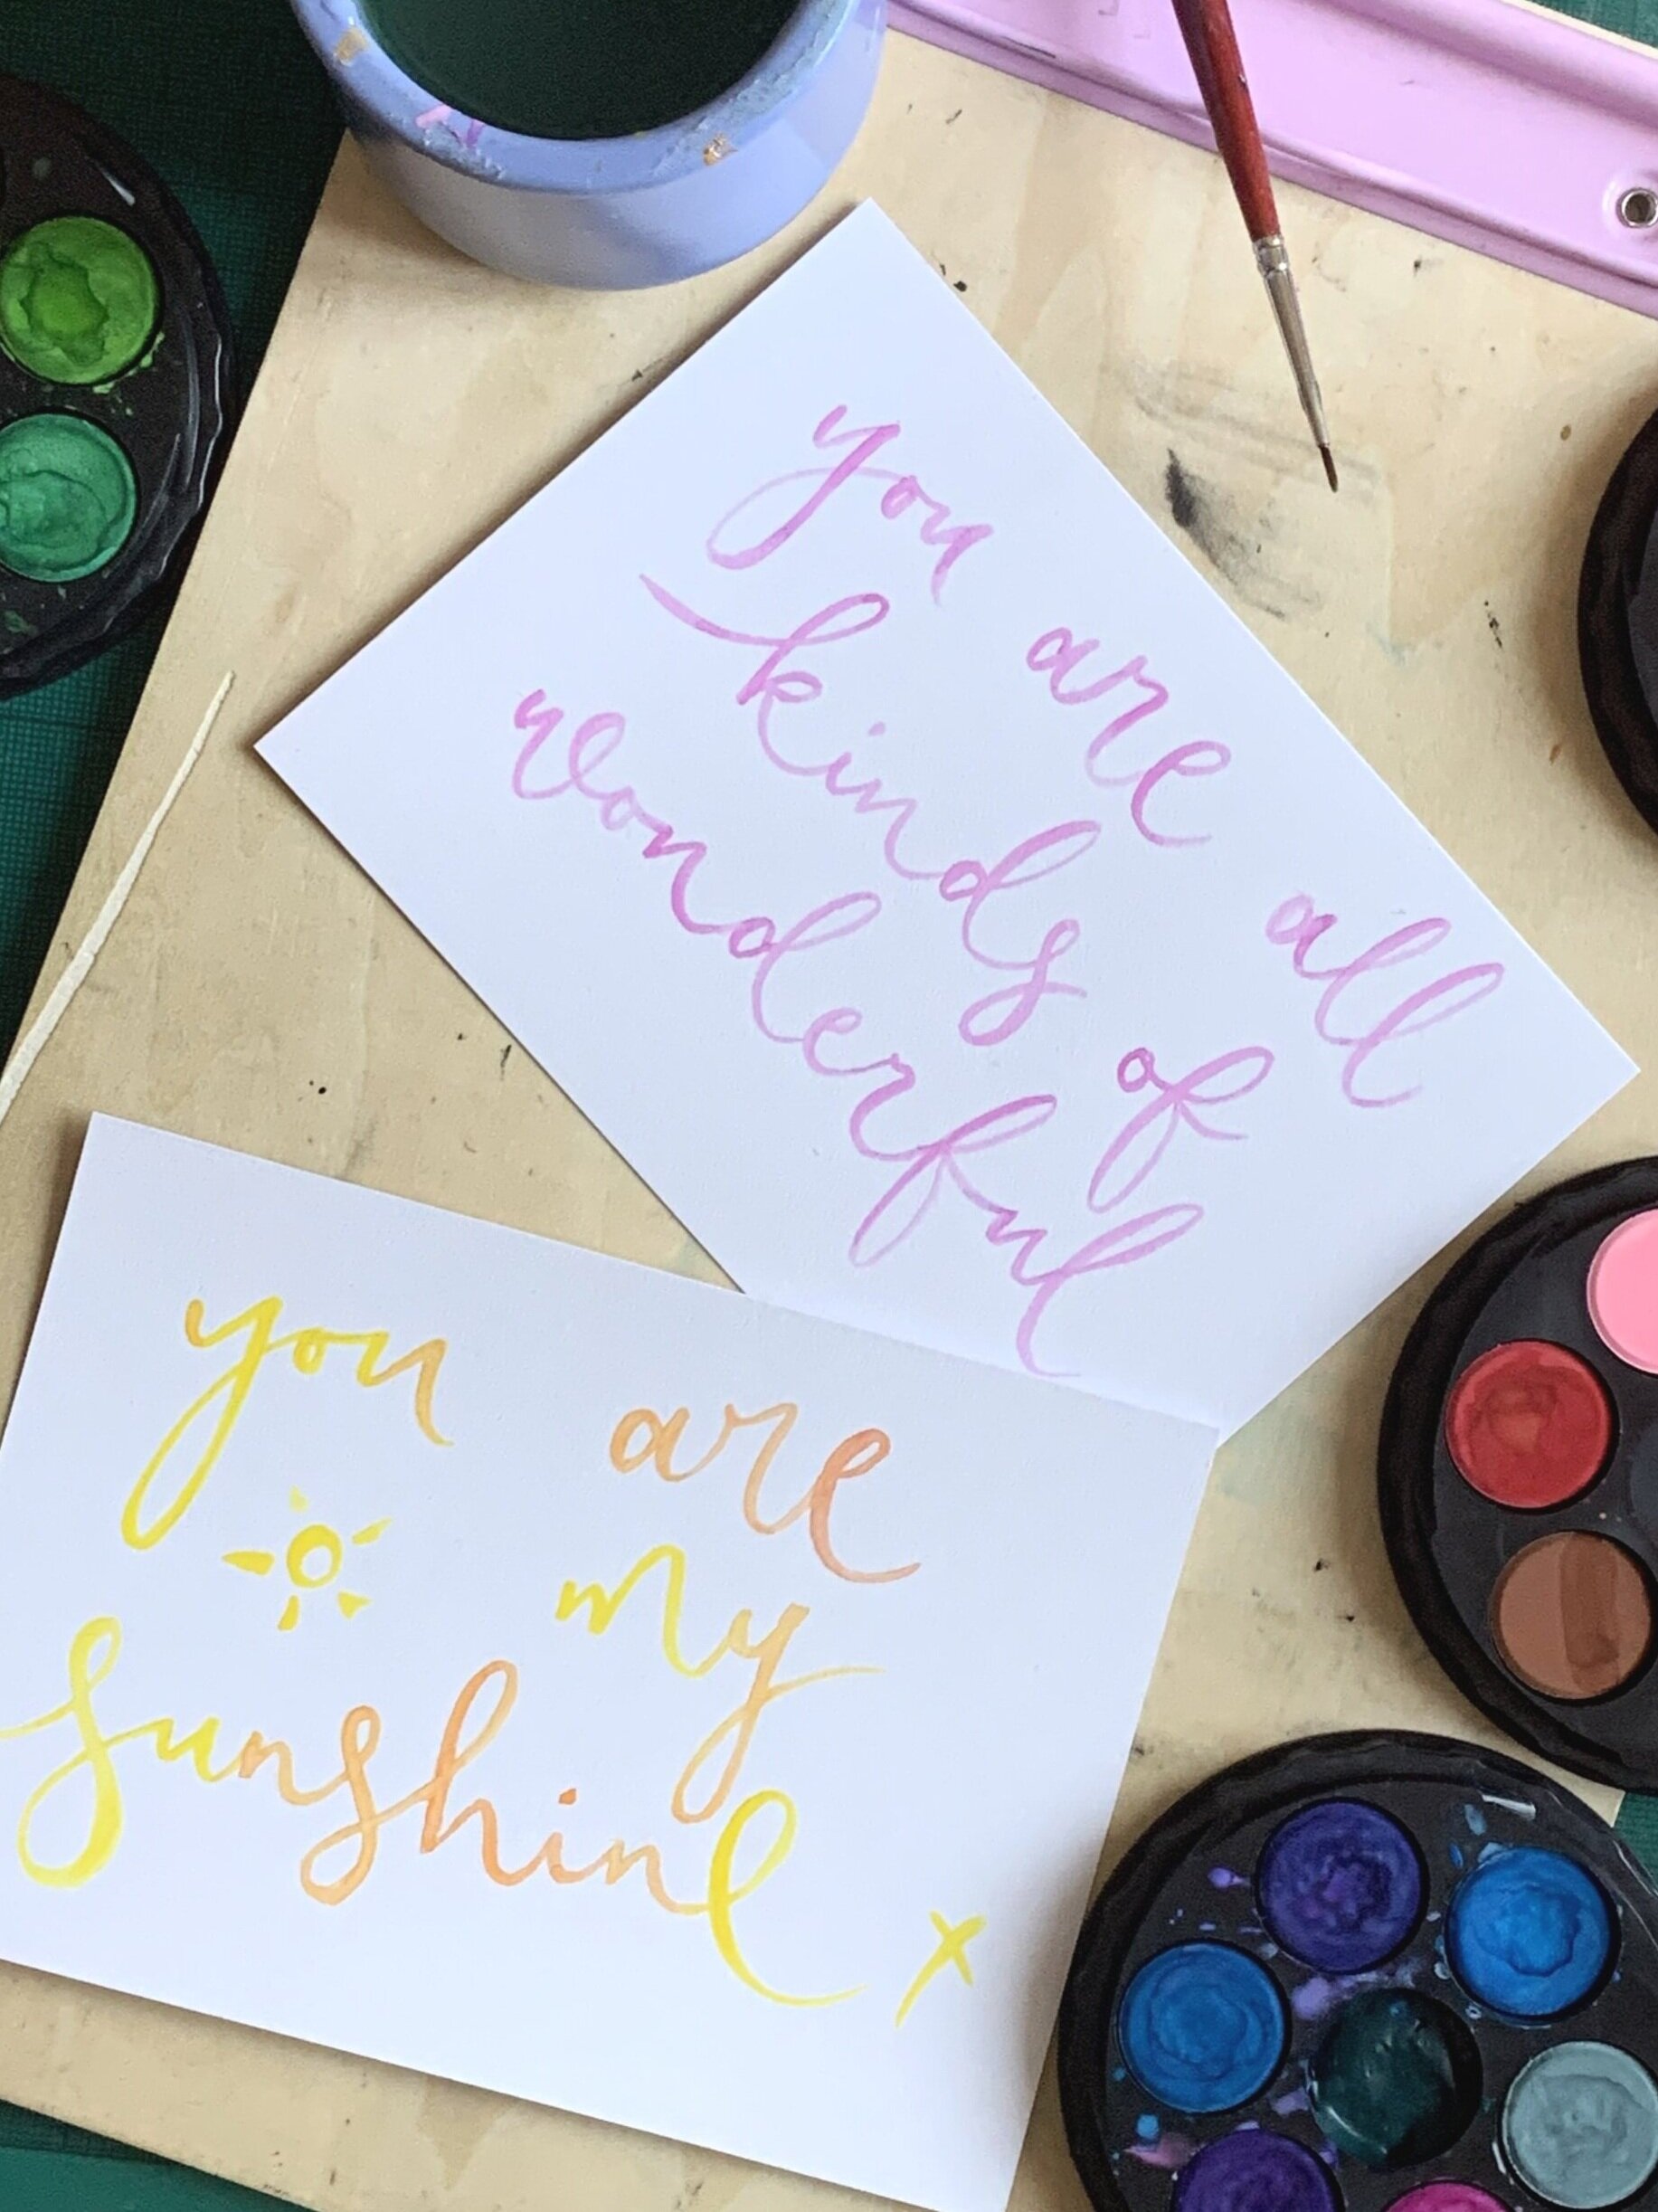 you are all
kinds of
wonderful
you are
my
sunshine x